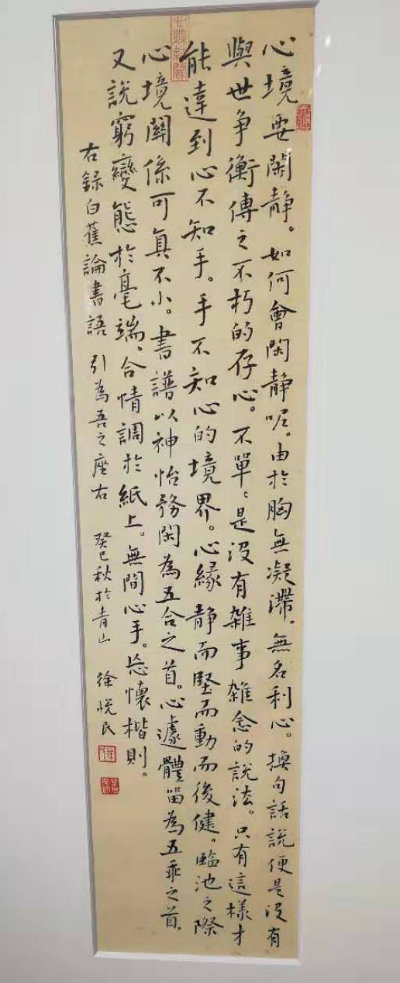 心境要閑靜。如何會閑靜呢。由於胸無凝滯。無名利心。換句話說便是没有
與世争衡傳之不朽的存心。不單單是没有雜事雜念的説法。只有這樣才
能達到心不知手。手不知心的境界。心緣静而堅而動而後健。臨池之際
心境關係可真不小。書譜以神怡務閑為五合之首。心遽體留為五乖之首。
又說窮變態於毫端。合情調於紙上。無間心手。忘懷楷則。
右錄白蕉論書語 引為吾之座右 癸巳秋於青山 徐悦民